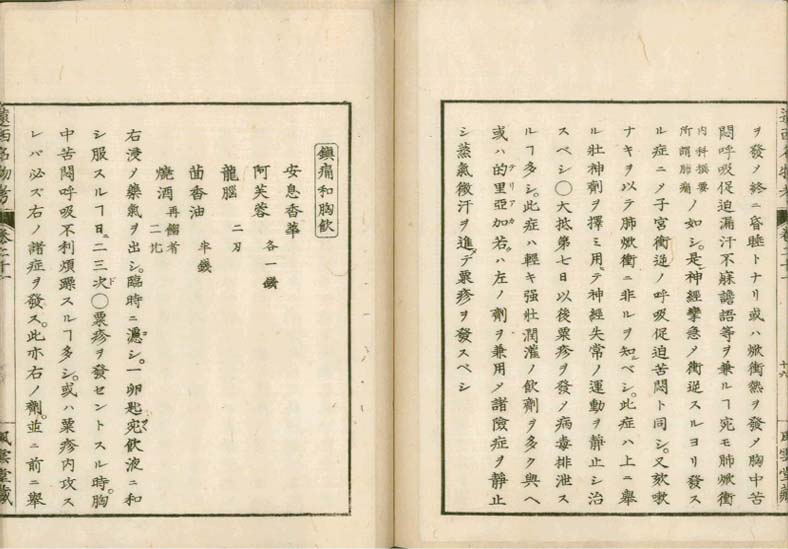 ヲ發ノ終ニ昏睡トナリ或ハ焮衝熱ヲ發メ胸中苦
悶呼吸促迫漏汗不寐譫語等ヲ兼ルヿ宛モ肺焮衝
内科撰要
所謂肺痛
ノ如シ。是神經攣急メ衝逆スルヨリ發ス
ル症ニノ子宮衝逆ノ呼吸促迫苦悶ト同シ。又欬嗽
ナキヲ以テ肺焮衝ニ非ルヲ知ベシ。此症ハ上ニ舉
ル壯神劑ヲ擇ミ用テ神經失常ノ運動ヲ靜止シ治
スベシ〇大抵第七日以後粟疹ヲ發メ病毒排泄ス
ルヿ多シ。此症ハ輕キ強壯潤灌ノ飲劑ヲ多ク與ヘ
或ハ的里亞加
テリアカ
若。ハ左ノ劑ヲ兼用メ諸險症ヲ靜止
シ蒸氣微汗ヲ進テ粟疹ヲ發スベシ
遠西名物考
卷二十一
十六
風雲堂藏
鎮痛和胸飲
安息香華
阿芙蓉 各一錢
龍腦 二刃
茴香油 半錢
燒酒 再餾者 二比
右浸ノ藥氣ヲ出シ。臨時ニ濾シ。一卵匙宛飲液ニ和
シ服スルヿ日ニ二三次〇粟疹ヲ發セントスル時。胸
中苦悶呼吸不利煩躁スルヿ多シ。或ハ粟疹内攻ス
レバ必ズ右ノ諸症ヲ發ス。此亦右ノ劑。並ニ前ニ舉
遠西名物考
卷二十一
風雲堂藏